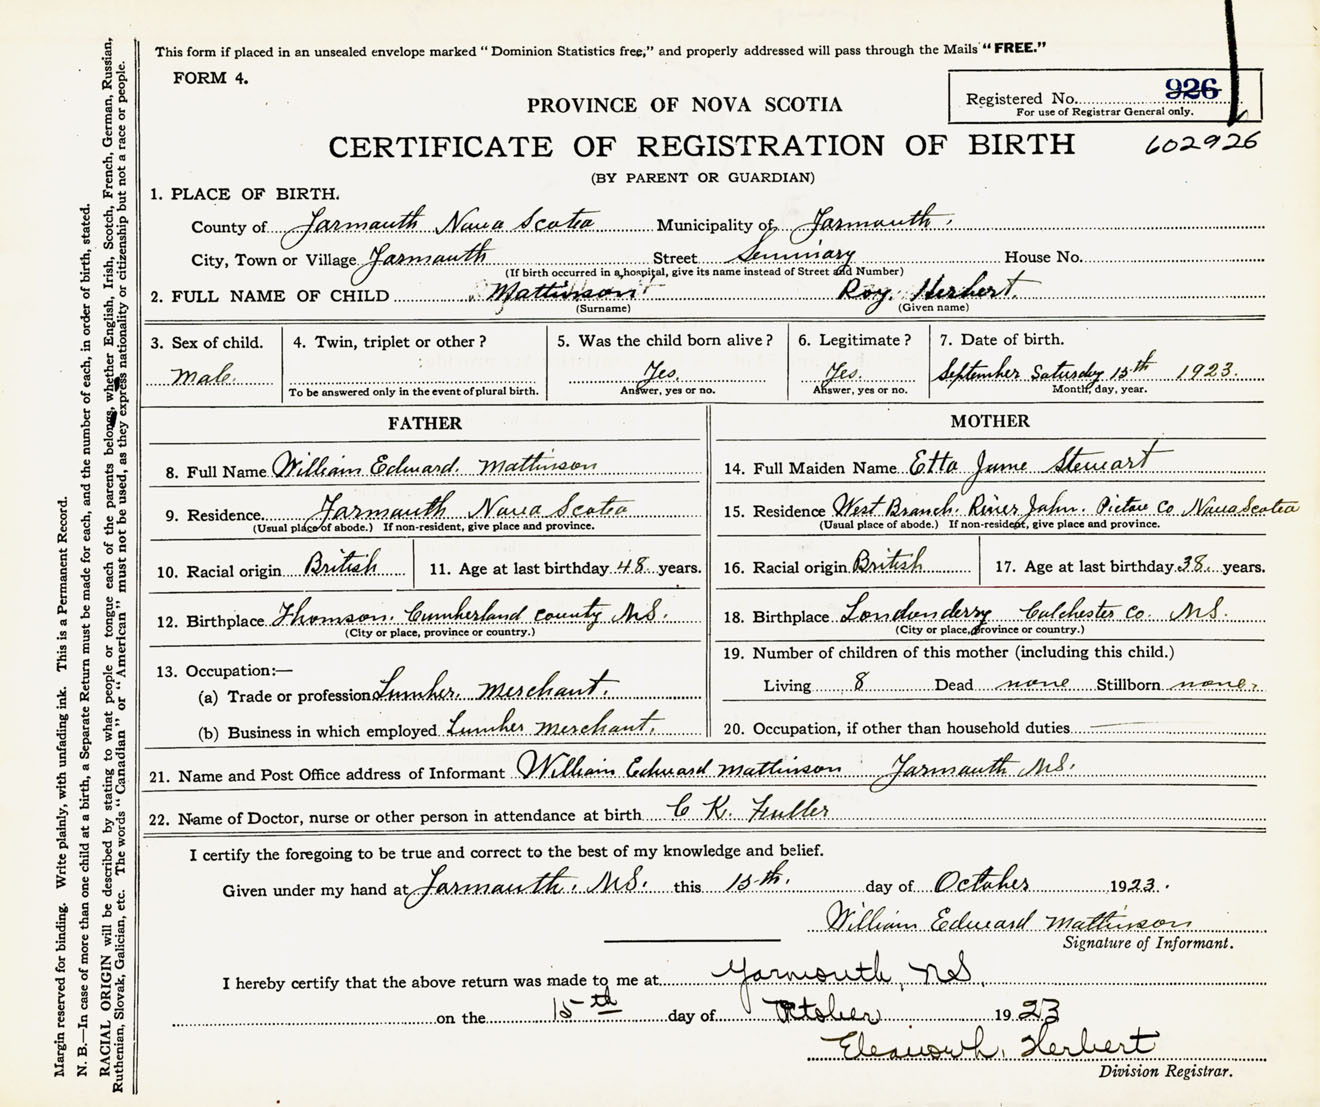 This form if placed in an unsealed envelope marked "Dominion Statistics free," and properly addressed will pass through the Mails "FREE."
FORM 4.
Registered No. 926
For use of Registrar General only.
PROVINCE OF NOVA SCOTIA
CERTIFICATE OF REGISTRATION OF BIRTH 602926
(BY PARENT OR GUARDIAN)
1. PLACE OF BIRTH.
County of Yarmouth Nova Scotia Municipality of Yarmouth.
City, Town or Village Yarmouth Street Seminary House No.
(If birth occurred in a hospital, give its name instead of Street and Number)
2. FULL NAME OF CHILD Mattinson Roy Herbert.
(Surname) (Given name)
3. Sex of child. 4. Twin, triplet or other? 5. Was the child born alive? 6. Legitimate? 7. Date of birth.
Male. Yes. Yes. September Saturday 15th 1923.
To be answered only in the event of plural birth. Answer, yes or no. Answer, yes or no. Month, day, year.
FATHER
8. Full Name William Edward Mattinson
9. Residence Yarmouth Nova Scotia
(Usual place of abode.) If non-resident, give place and province.
10. Racial origin British 11. Age at last birthday 48 years.
12. Birthplace Thomson. Cumberland County N.S.
(City or place, province or country.)
13. Occupation:—
(a) Trade or profession Lumber Merchant.
(b) Business in which employed Lumber Merchant.
MOTHER
14. Full Maiden Name Etta Jane Stewart
15. Residence West Branch. River John. Pictou Co Nova Scotia
(Usual place of abode.) If non-resident, give place and province.
16. Racial origin British 17. Age at last birthday 38 years.
18. Birthplace Londonderry Colchester Co. N.S.
(City or place, province or country.)
19. Number of children of this mother (including this child.)
Living 8 Dead none Stillborn none.
20. Occupation, if other than household duties
21. Name and Post Office address of Informant William Edward Mattinson Yarmouth N.S.
22. Name of Doctor, nurse or other person in attendance at birth C K. Fuller
I certify the foregoing to be true and correct to the best of my knowledge and belief.
Given under my hand at Yarmouth. N.S. this 15th. day of October 1923.
William Edward Mattinson
Signature of Informant.
I hereby certify that the above return was made to me at Yarmouth, N.S.
on the 15th day of October 1923
Herbert
Division Registrar.
Margin reserved for binding. Write plainly, with unfading ink. This is a Permanent Record.
N. B.—In case of more than one child at a birth, a Separate Return must be made for each, and the number of each, in order of birth, stated.
RACIAL ORIGIN will be described by stating to what people or tongue each of the parents belongs, whether English, Irish, Scotch, French, German, Russian,
Ruthenian, Slovak, Galician, etc. The words "Canadian" or "American" must not be used, as they express nationality or citizenship but not a race or people.